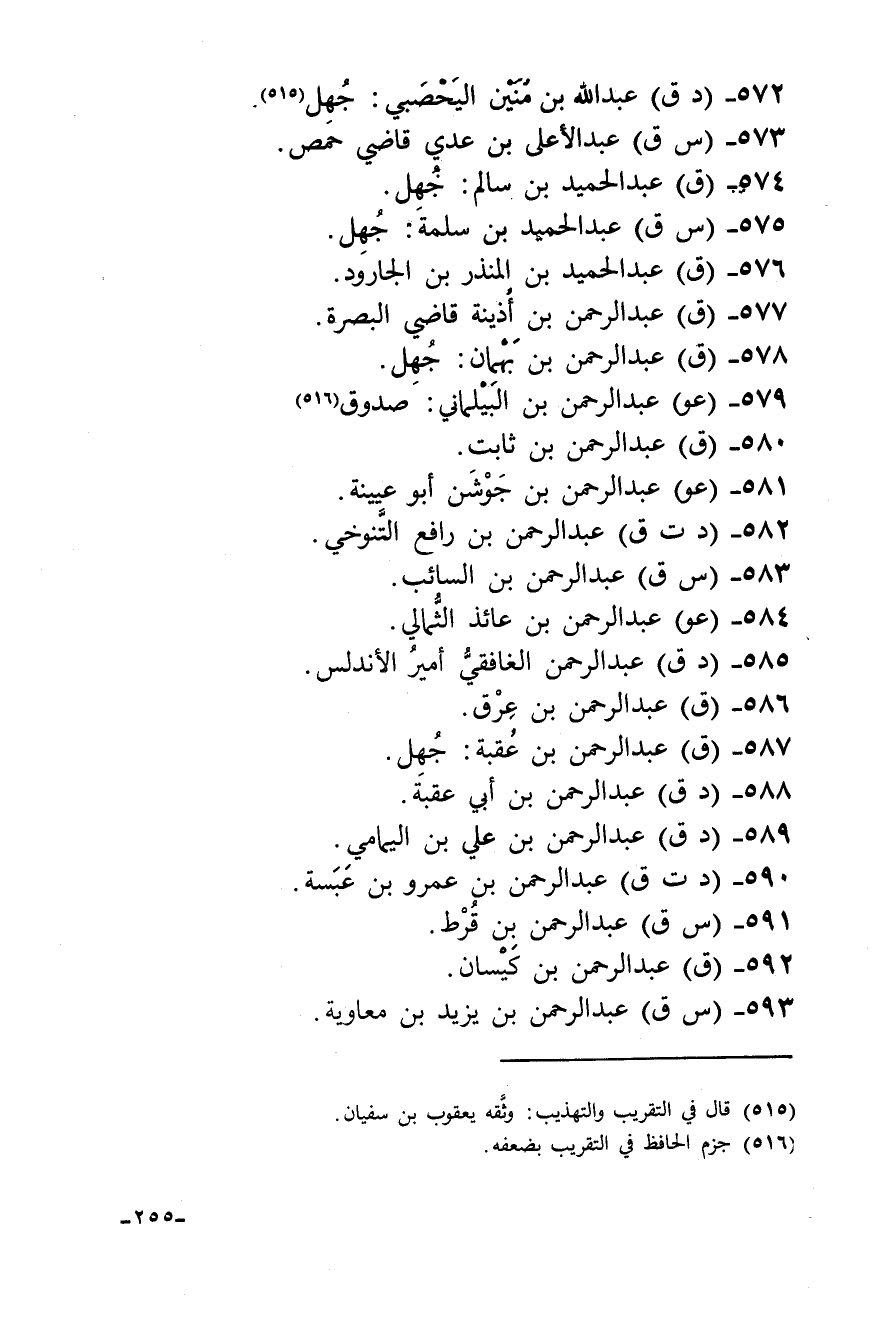 ٥٧٢ـ (د ق) عبدالله بن مُنَيْن اليَحْصَبي: جُهِل(٥١٥).
٥٧٣ـ (س ق) عبدالأعلى بن عدي قاضي حمص.
٥٧٤ـ (ق) عبدالحميد بن سالم: جُهِل.
٥٧٥ـ (س ق) عبدالحميد بن سلمة: جُهِل.
٥٧٦ـ (ق) عبدالحميد بن المنذر بن الجارود.
٥٧٧ـ (ق) عبدالرحمن بن أُذينة قاضي البصرة.
٥٧٨ـ (ق) عبدالرحمن بن بَهْمان: جُهِل.
٥٧٩ـ (عو) عبدالرحمن بن البَيْلماني: صدوق(٥١٦)
٥٨٠ـ (ق) عبدالرحمن بن ثابت.
٥٨١ـ (عو) عبدالرحمن بن جَوْشَن أبو عيينة.
٥٨٢ـ (د ت ق) عبدالرحمن بن رافع التَّنوخي.
٥٨٣ـ (س ق) عبدالرحمن بن السائب.
٥٨٤ـ (عو) عبدالرحمن بن عائذ الثُّمالي.
٥٨٥ـ (د ق) عبدالرحمن الغافقيُّ أميرُ الأندلس.
٥٨٦ـ (ق) عبدالرحمن بن عِرْق.
٥٨٧ـ (ق) عبدالرحمن بن عُقبة: جُهِل.
٥٨٨ـ (د ق) عبدالرحمن بن أبي عقبة.
٥٨٩ـ (د ق) عبدالرحمن بن علي بن اليمامي.
٥٩٠ـ (د ت ق) عبدالرحمن بن عمرو بن عَبَسة.
٥٩١ـ (س ق) عبدالرحمن بن قُرْط.
٥٩٢ـ (ق) عبدالرحمن بن كَيْسان.
٥٩٣ـ (س ق) عبدالرحمن بن يزيد بن معاوية.
(٥١٥) قال في التقريب والتهذيب: وثَّقه يعقوب بن سفيان.
(٥١٦) جزم الحافظ في التقريب بضعفه.
ـ٢٥٥ـ